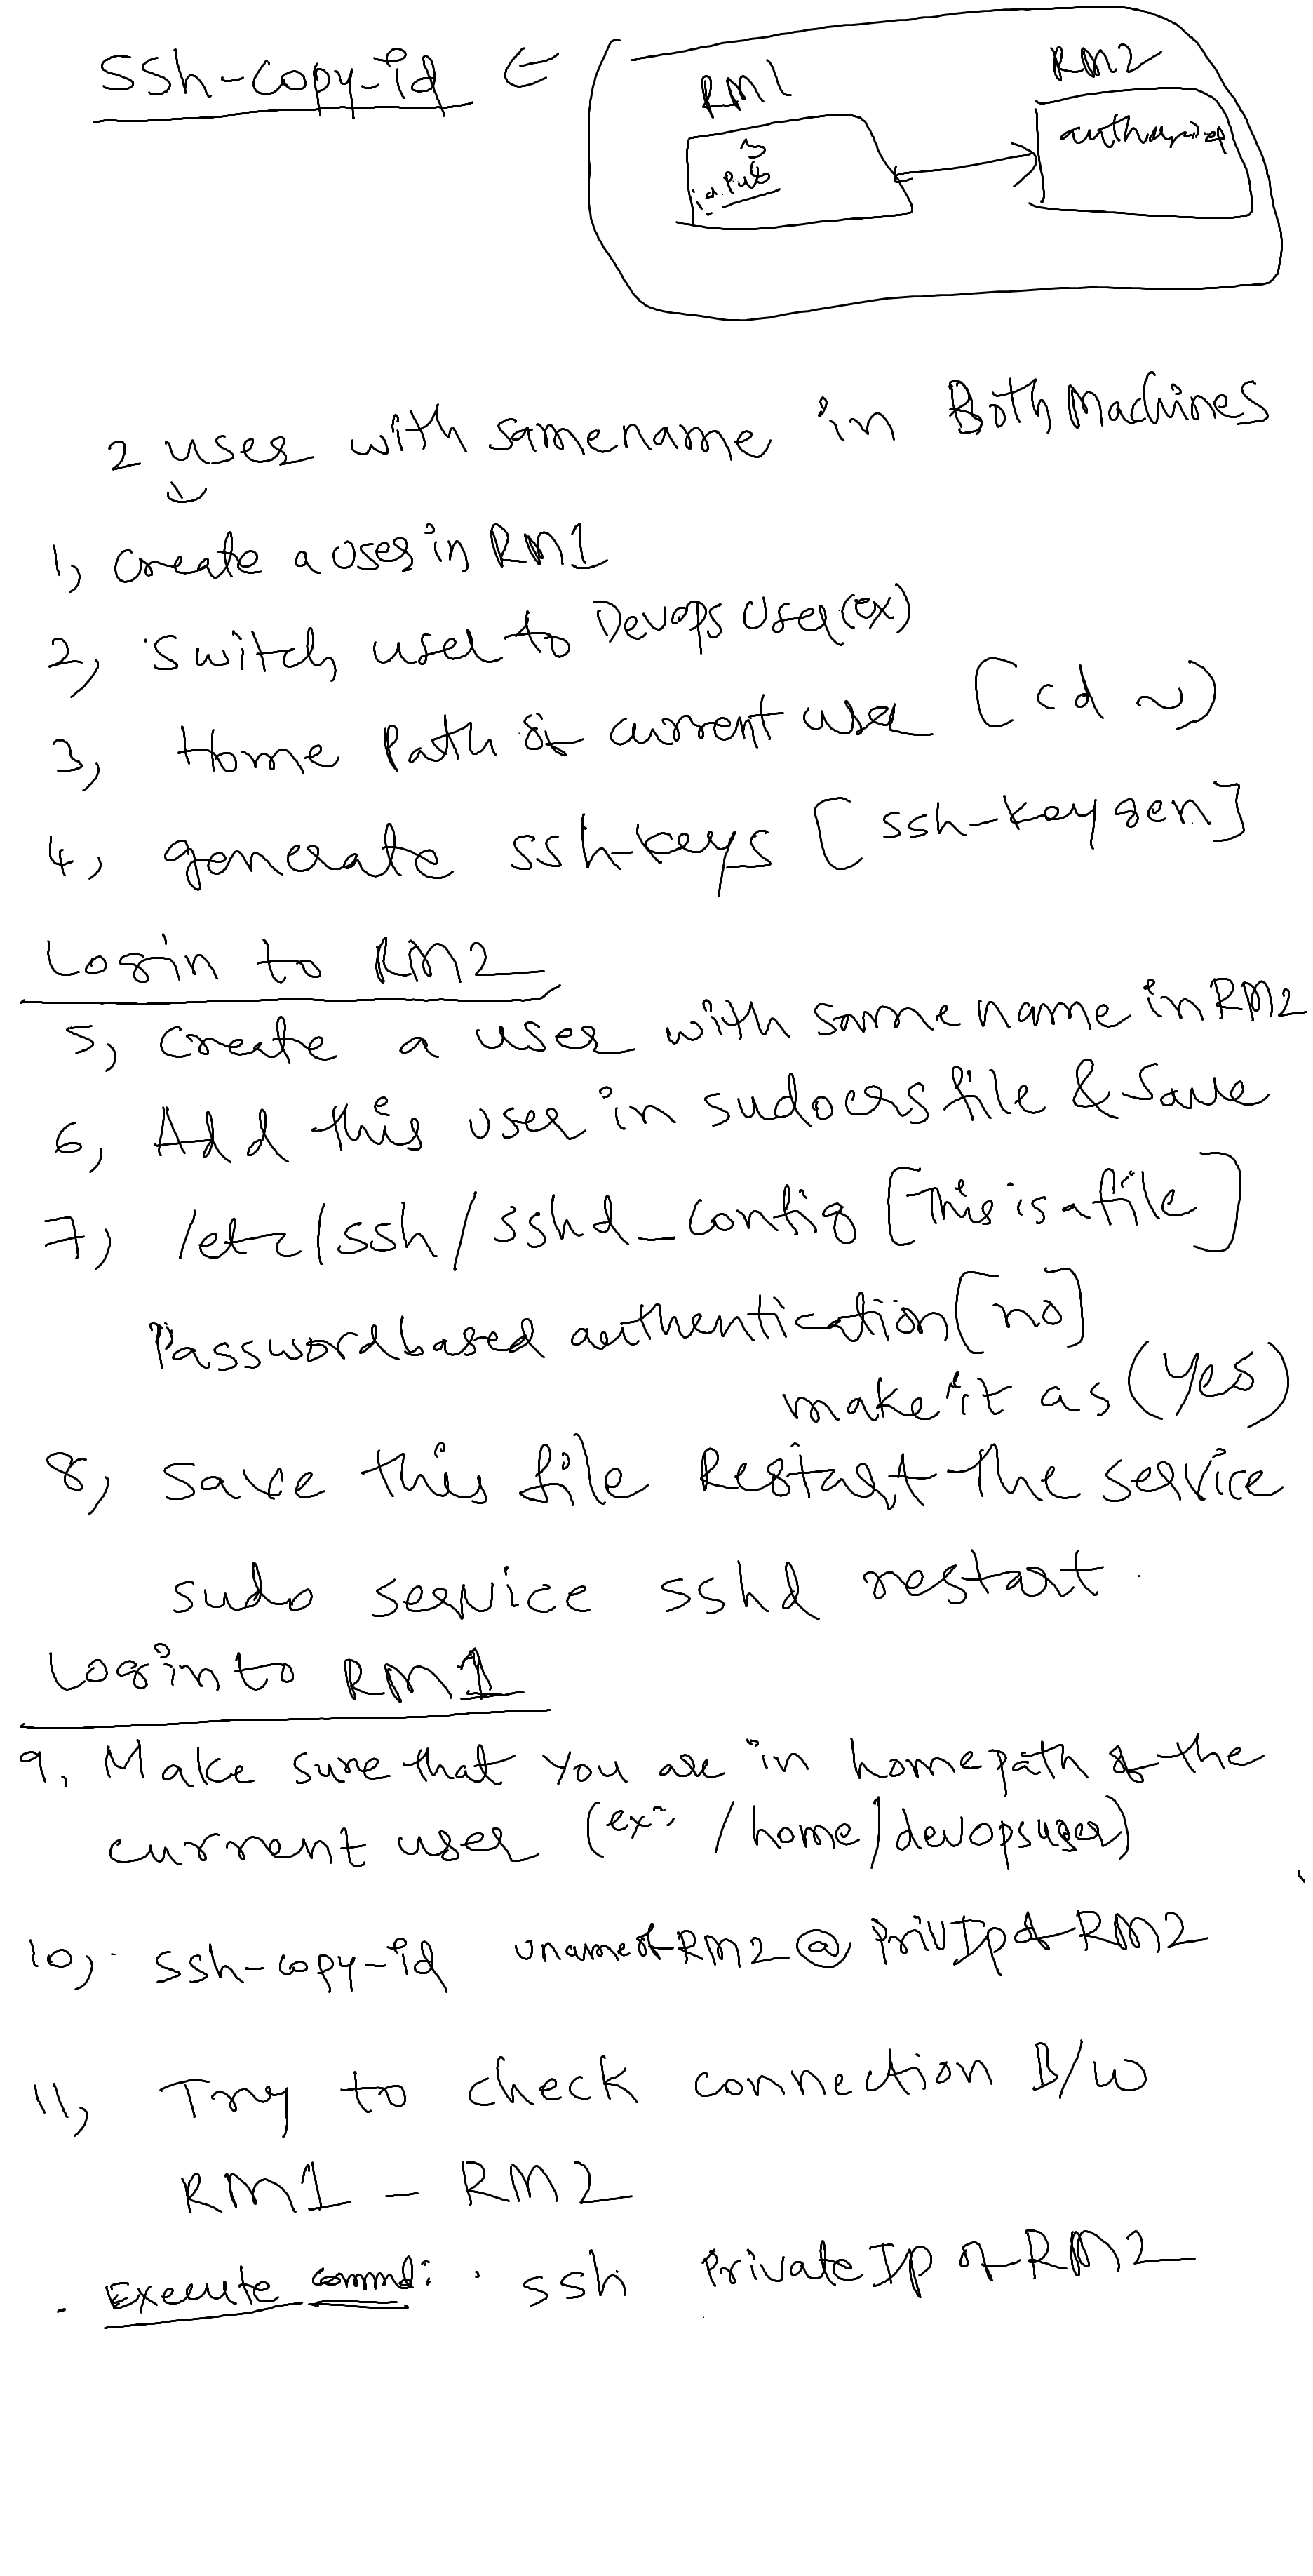 ssh-copy-id ←
RM1
RM2
authorized
id.pub
2 user with same name in Both Machines
1, Create a user in RM1
2, Switch user to Devops User (ex)
3, Home Path of current user (cd ~)
4, generate ssh-keys [ssh-keygen]
Login to RM2
5, Create a user with same name in RM2
6, Add this user in sudoers file & Save
7, /etc/ssh/sshd_config [This is a file]
Password based authentication [no]
make it as (Yes)
8, Save this file Restart the service
sudo service sshd restart
Login to RM1
9, Make sure that You are in home path of the
current user (ex: /home/devopsuser)
10, ssh-copy-id uname of RM2@PrivIp of RM2
11, Try to check connection B/w
RM1 - RM2
Execute commd: ssh Private Ip of RM2